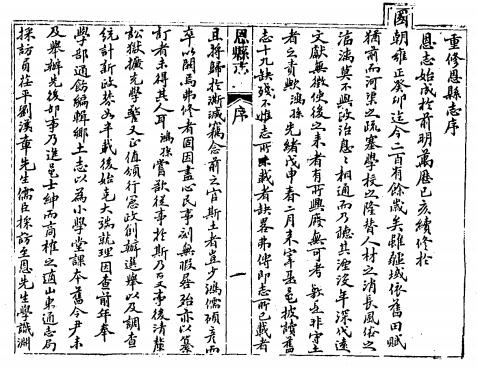 重修恩縣志序
恩志始成於前明萬曆己亥續修於
國朝雍正癸卯迄今二百有餘歲矣雖疆域依舊田賦
猶前而河渠之疏塞學校之隆替人材之消長風俗之
淳漓莫不與政治息息相通而乃聽其湮沒年深代遠
文獻無徵使後之來者有所興廢無可考豈非守土
者之責歟鴻孫光緒戊申春二月來宰是邑披讀舊
志十九缺殘不惟志所未載者缺略弗傳即志所已載者
恩縣志 序 一
且將歸於澌滅竊念前之官斯土者豈少鴻儒碩彥而
卒以闕焉弗修者固因盡心民事刻無暇晷殆亦以纂
訂者未得其人耳鴻孫嘗欲從事於斯乃百事後清釐
訟獄擴充學警又正值頒行憲政創辦選舉以及調查
統計新政旁午年載後始克大端就理因查前年奉
學部通飭編輯鄉土志以為小學堂課本舊令尹未
及舉辦先後卸事乃進邑士紳而商榷之適山東通志局
採訪員茌平劉漢章先生儒臣採訪至恩先生學識淵